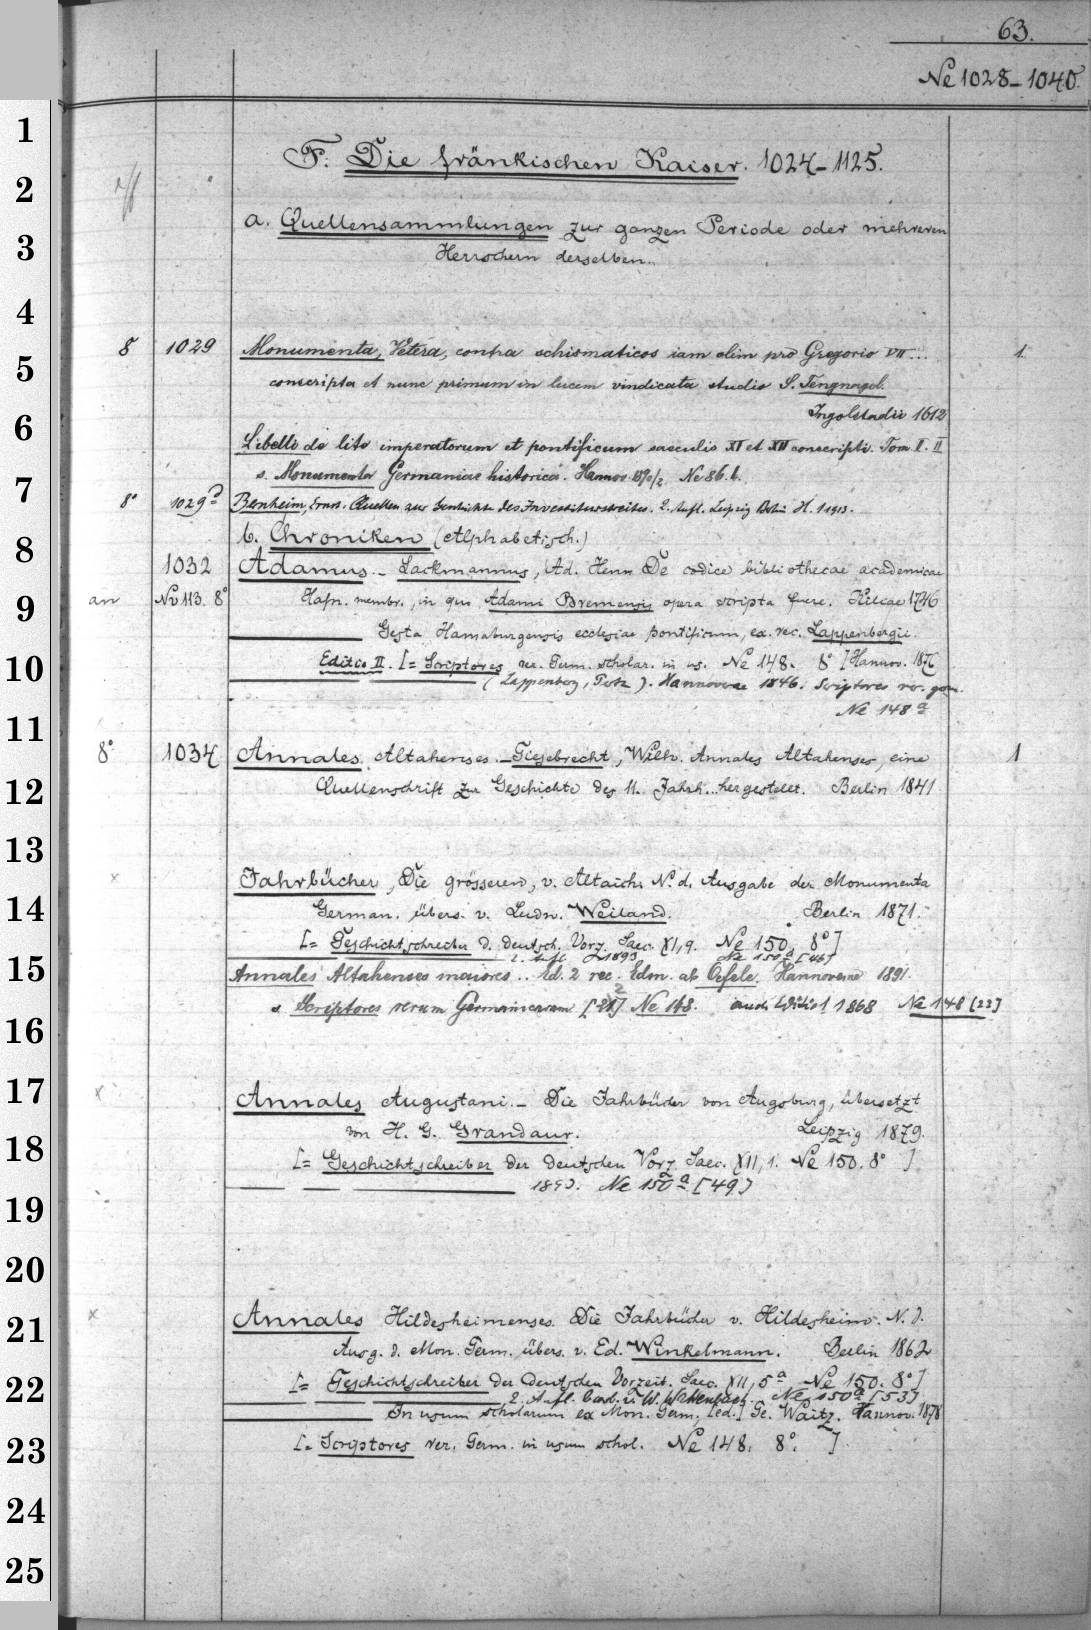 63.
Ne 1028-1040.
1
F. Die fränkischen Kaiser. 1024-1125.
2
a. Quellensammlungen zur ganzen Periode oder mehreren
3
Herrschern derselben.
4
8 1029 Monumenta, Vetera, contra schismaticos iam olim pro Gregorio VII... 1.
5
conscripta et nunc primum in lucem vindicata studio S. Tengnagel.
Ingolstadii 1612
6
Libelli de lite imperatorum et pontificum saeculis XI et XII conscripti. Tom I. II
s. Monumenta Germaniae historica. Hannov. Ne 86. b.
7
8° 1029a Bernheim, Ernst. Quellen zur Geschichte des Investiturstreites. 2. Aufl. Leipzig Berlin H. 1 1913.
b. Chroniken (Alphabetisch.)
8
1032 Adamus. - Lackmannus, Ad. Henr. De codice bibliothecae academicae
an Nv 113. 8° Hafn. membr., in quo Adami Bremensis opera scripta fuere. Kilcae 1746
9
Gesta Hamaburgensis ecclesiae pontificum, ex. rec. Lappenbergii.
10
Editio II. [= Scriptores rer. Germ. scholar. in us. Ne 148. 8° [Hannov. 1876
(Lappenberg, Pertz). Hannoverae 1846. Scriptores rer. germ.
Ne 148a
11
8° 1034 Annales Altahenses. - Giesebrecht, Wilh. Annales Altahenses, eine 1
12
Quellenschrift zur Geschichte des 11. Jahrh... hergestellt. Berlin 1841
13
x Jahrbücher, Die grösseren, v. Altaich. N. d. Ausgabe der Monumenta
14
German. übers. v. Ludw. Weiland. Berlin 1871.
[= Geschichtschreiber d. deutsch. Vorz. Saec. XI, 9. Ne 150. 8°]
2. Aufl. 1893 Ne 150a [46]
15
Annales Altahenses maiores... Ed. 2 rec. Edm. ab Oefele. Hannoverae 1891.
s. Scriptores rerum Germanicarum Ne 148. auch Editio 1 1868 Ne 148 [22]
16
17
x Annales Augustani. - Die Jahrbücher von Augsburg, übersetzt
von H. G. Grandaur. Leipzig 1879.
18
[= Geschichtschreiber der deutschen Vorz. Saec. XII, 1. Ne 150. 8° ]
Ne 150a [49]
19
20
x Annales Hildesheimenses. Die Jahrbücher v. Hildesheim. N. d.
21
Ausg. d. Mon. Germ. übers. v. Ed. Winkelmann. Berlin 1862
22
[= Geschichtschreiber der deutschen Vorzeit. Saec. XII, 5a Ne 150. 8°]
2. Aufl. bearb. v. W. Wattenbach. Ne 150a [53]
In usum scholarum ex Mon. Germ. [ed.] Ge. Waitz. Hannov. 1878
23
[= Scriptores rer. Germ. in usum schol. Ne 148. 8°. ]
24
25